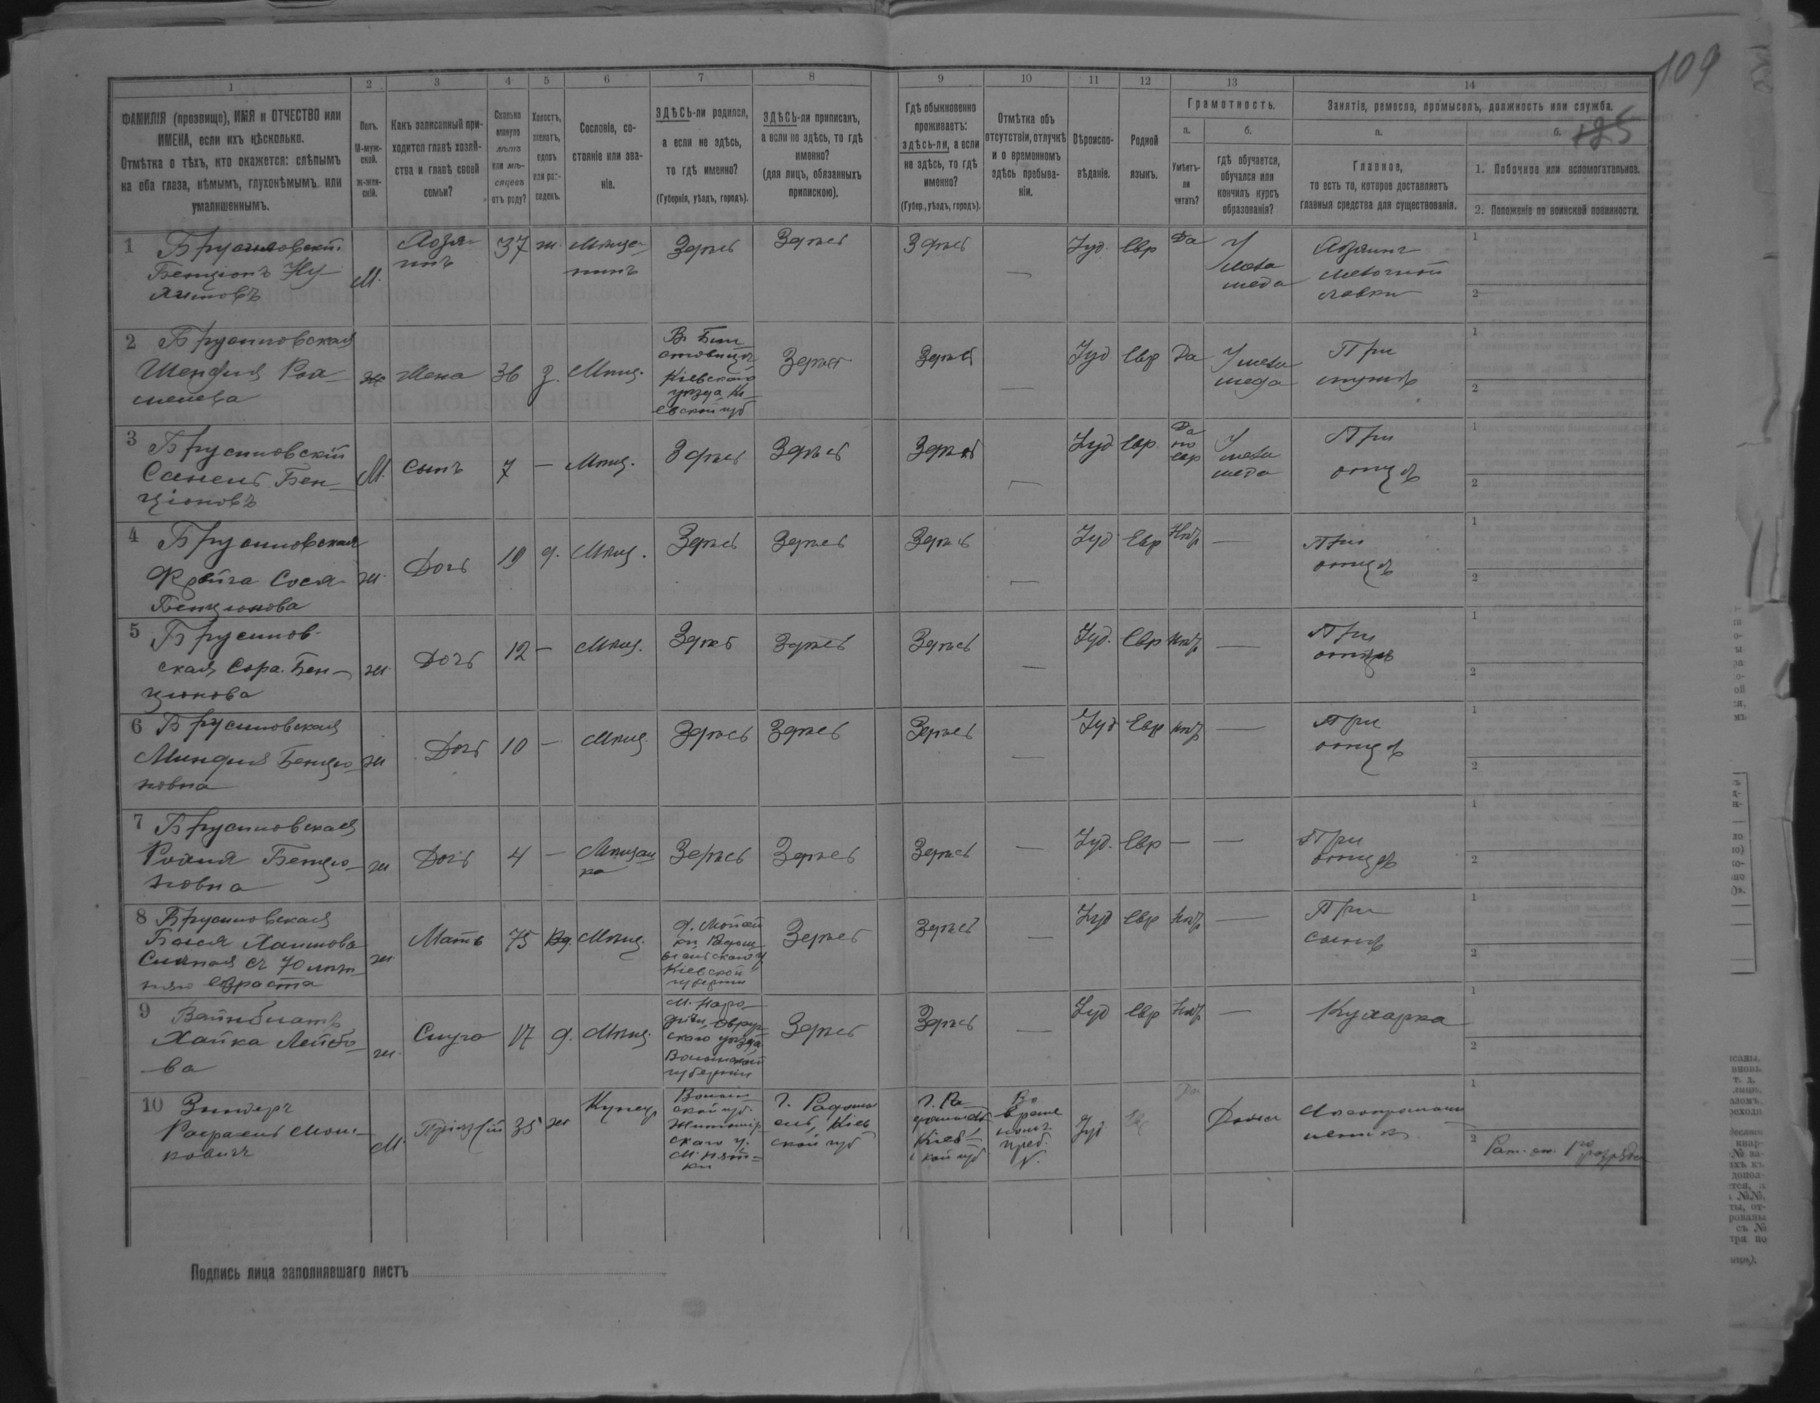 109
1 2 3 4 5 6 7 8 9 10 11 12 13 14
ФАМИЛІЯ (прозвище), ИМЯ и ОТЧЕСТВО или
ИМЕНА, если ихъ нѣсколько.
Отмѣтка о тѣхъ, кто окажется: слѣпымъ
на оба глаза, нѣмымъ, глухонѣмымъ или
умалишеннымъ.
Полъ.
М-муж-
ской.
ж-жен-
скій.
Какъ записанный при-
ходится главѣ хозяй-
ства и главѣ своей
семьи?
Сколько
минуло
лѣтъ
или мѣ-
сяцевъ
отъ роду?
Холостъ,
женатъ,
вдовъ
или раз-
веденъ.
Сословіе, со-
стояніе или зва-
ніе.
ЗДѢСЬ-ли родился,
а если не здѣсь,
то гдѣ именно?
(Губернія, уѣздъ, городъ).
ЗДѢСЬ-ли приписанъ,
а если не здѣсь, то гдѣ
именно?
(для лицъ, обязанныхъ
припискою).
Гдѣ обыкновенно
проживаетъ:
здѣсь-ли, а если
не здѣсь, то гдѣ
именно?
(Губер., уѣздъ, городъ).
Отмѣтка объ
отсутствіи, отлучкѣ
и о временномъ
здѣсь пребыва-
ніи.
Вѣроиспо-
вѣданіе.
Родной
языкъ.
Грамотность.
а.
Умѣетъ-
ли
читать?
б.
гдѣ обучается,
обучался или
кончилъ курсъ
образованія?
Занятіе, ремесло, промыселъ, должность или служба.
а.
Главное,
то есть то, которое доставляетъ
главныя средства для существованія.
б.
1. Побочное или вспомогательное.
2. Положеніе по воинской повинности.
1 Брусиловскій
Бенціонъ Ну
М.
Хозя-
инъ
37 ж. Мѣща-
нинъ
Здѣсь Здѣсь Здѣсь — Іуд. Евр Да
У
мела
меда
Хозяинъ
мелочной
лавки
1
2
2 Брусиловская
Шендля
ж Жена 36 з. Мѣщ.
Кіевскаго
уѣзда, Кі-
евской губ
Здѣсь Здѣсь — Іуд Евр Да
У мела
меда
При
мужѣ
1
2
3 Брусиловскій
Бен-
ціоновъ
М. сынъ 7 — Мѣщ. Здѣсь Здѣсь Здѣсь — Іуд Евр
Да
по
евр
У
мела
меда
При
отцѣ
1
2
4 Брусиловская
Фрейга Сося
Бенціонова
ж. Дочь 19 д. Мѣщ. Здѣсь Здѣсь Здѣсь — Іуд Евр Нѣт —
При
отцѣ
1
2
5 Брусилов-
ская Сора Бен-
ціонова
ж. Дочь 12 — Мѣщ. Здѣсь Здѣсь Здѣсь — Іуд. Евр Нѣт —
При
отцѣ
1
2
6 Брусиловская
Миндля Бенціо-
новна
ж Дочь 10 — Мѣщ. Здѣсь Здѣсь Здѣсь — Іуд Евр Нѣт —
При
отцѣ
1
2
7 Брусиловская
Рохля Бенціо-
новна
ж Дочь 4 — Мѣщан
ка
Здѣсь Здѣсь Здѣсь — Іуд. Евр — —
При
отцѣ
1
2
8 Брусиловская
Бася Хаимова
Слепая съ 70 лѣт-
няго возраста
ж Мать 75 Вд. Мѣщ.
Кіевской
губерніи
Здѣсь Здѣсь — Іуд Евр Нѣт —
При
сынѣ
1
2
9 Вайнблатъ
Хайка Лейбо-
ва
ж. Слуга 17 д. Мѣщ.
М. Наро-
дичи, Овруч-
скаго уѣзда
Волынской
губерніи
Здѣсь Здѣсь — Іуд Евр Нѣт — Кухарка
1
2
10
М Пріѣзжій 35 ж Купецъ
Волын-
ской губ.
Житомір
скаго у.
Г. Радомы
сль, Кіев
ской губ
Г. Ра-
домысль
Кіев-
кой губ
Во
время
Іуд Да Дома
1
2 1го разряда
Подпись лица заполнявшаго листъ